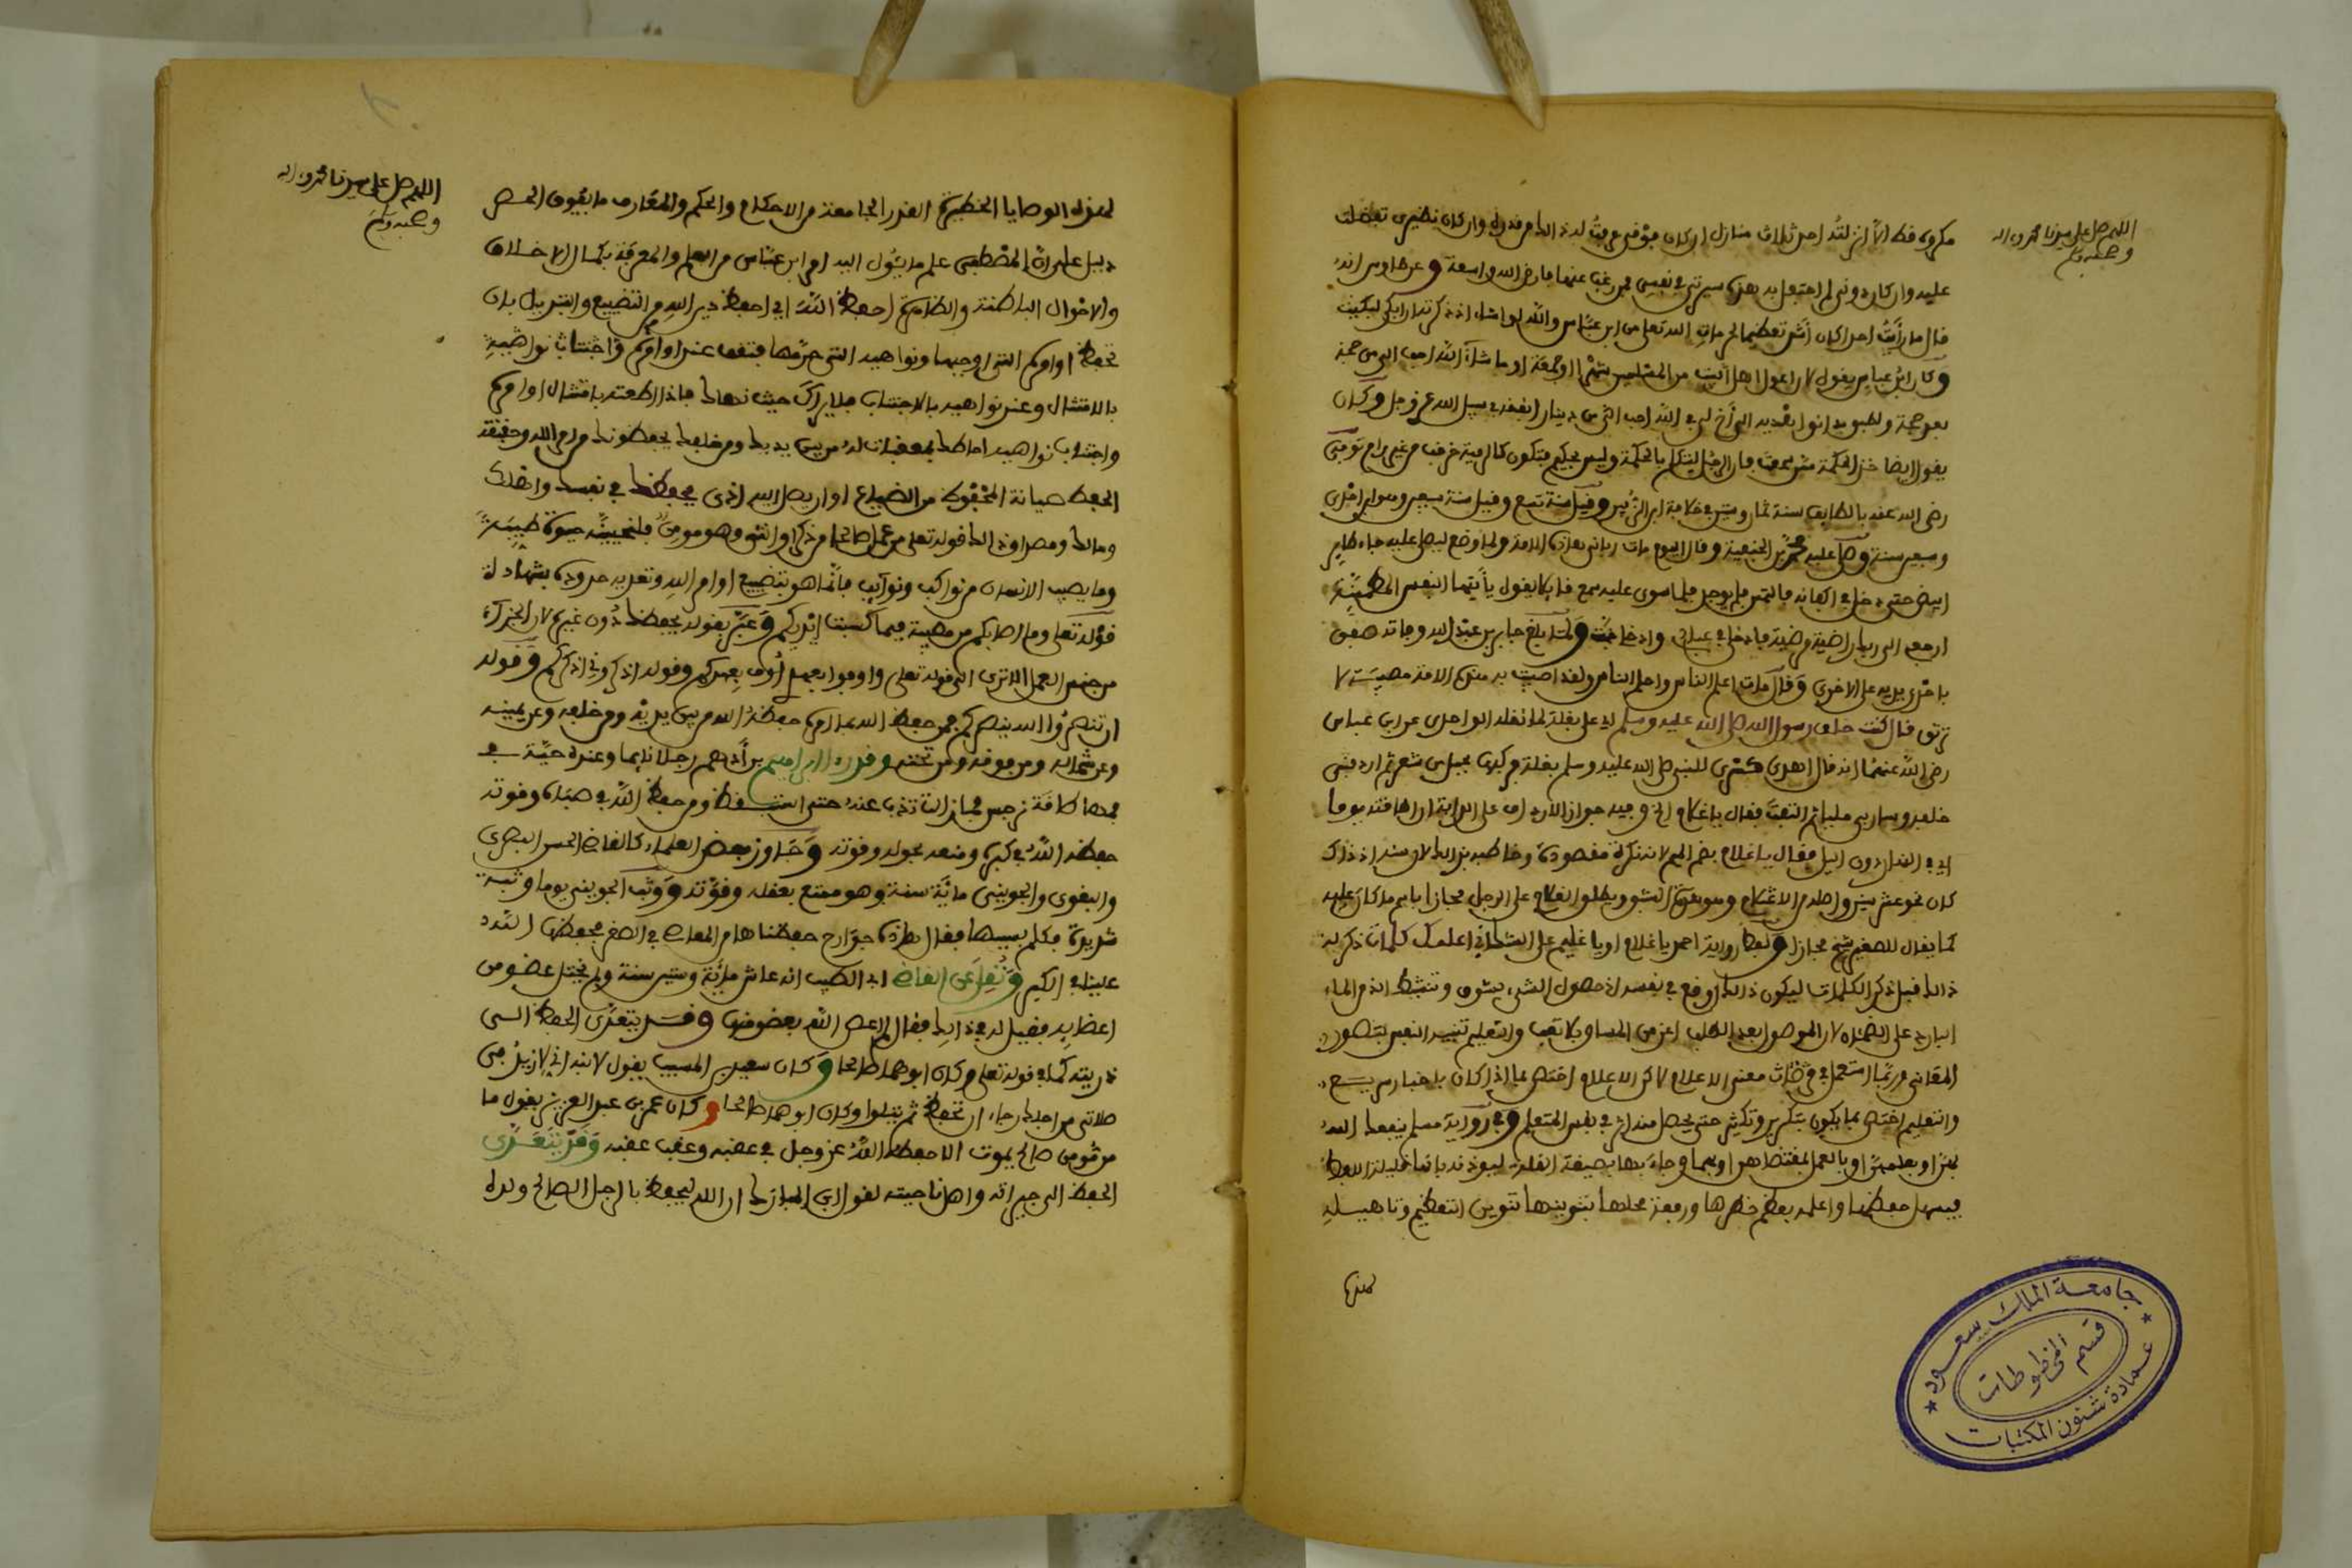 اللهم صل على سيدنا محمد واله
وصحبه وسلم
مكروه قط الا انزلته احد ثلاث منازل ان كان فوقي عرفت له ذلك من قدره وان كان نظيري تفضلت
عليه وان كان دوني لم احتفل به هذه سيرتي في نفسي فمن رغب عنها فارض الله واسعة وعن طاوس انه
قال ما رأيت احدا كان اشد تعظيما لحرمات الله تعلى من ابن عباس والله لو اشاء اذا ذكرته ان ابكي لبكيت
وكان ابن عباس يقول لان اعول اهل بيت من المسلمين شهرا او جمعة او ما شاء الله احب الي من حجة
بعد حجة ولطبق بدانق اهديه الى أخ لي في الله احب الي من دينار انفقه في سبيل الله عز وجل وكان
يقول ايضا خذ الحكمة ممن سمعت فان الرجل ليتكلم بالحكمة وليس بحكيم فتكون كالرمية خرجت من غير رام توفي
رضي الله عنه بالطايف سنة ثمان وستين في خلافة ابن الزبير وقيل سنة تسع وقيل سنة سبعين وهو ابن احدى
وسبعين سنة وصلى عليه محمد بن الحنفية وقال اليوم مات رباني هذه الامة ولما وضع ليصلى عليه جاء طاير
ابيض حتى دخل في اكفانه فالتمس فلم يوجد فلما سوى عليه سمع قايلا يقول يأيتها النفس المطمئنة
ارجعي الى ربك راضية مرضية فادخلي في عبادي وادخلي جنتي ولما بلغ جابر بن عبد الله وفاته صفق
باحدى يديه على الاخرى وقال مات اعلم الناس واحلم الناس ولقد اصيبت به هذه الامة مصيبة لا
ترتق قال كنت خلف رسول الله صلى الله عليه وسلم اي على بغلة لما نقله الواحدي عن ابن عباس
رضي الله عنهما انه قال اهدى كسرى للنبي صلى الله عليه وسلم بغلة فركبها بحبل من شعر ثم اردفني
خلفه وسار بي مليا ثم التفت فقال يا غلام الخ وفيه جواز الارداف على الدابة ان اطاقته يوما
اي في النهار دون الليل فقال يا غلام بضم الميم لانه نكرة مقصودة وخاطبه بذلك لان سنه اذ ذاك
كان نحو عشر سنين
كما يقال للصغير شيخ مجازا ولفظ رواية احمد يا غلام او يا غليم على الشك اني اعلمك كلمات ذكر له
ذلك قبل ذكر الكلمات ليكون ذلك اوقع في نفسه اذ حصول الشيء بشوق
البارد على الظمأ لان الحصول بعد الطلب اعز من المساق بلا تعب والتعليم تنبيه النفس لتصور
المعاني وربما استعمل في معنى الاعلام لاكن الاعلام اختص بما اذا كان باخبار سريع
والتعليم اختص بما يكون بتكرير وتكثير حتى يحصل منه اثر في نفس المتعلم وفي رواية مسلم ينفعك الله
بهن او بعلمهن او بالعمل بمقتضاهن او بهما وجاء بها بصيغة القلة ليوذنه بانها قليلة اللفظ
فيسهل حفظها واعلمه بعظم خطرها ورفعة محلها بتنوينها تنوين التعظيم وتاهيله
لهذه
جامعة الملك سعود
قسم المخطوطات
عمادة شئون المكتبات
اللهم صل على سيدنا محمد واله
وصحبه وسلم
لهذه الوصايا الخطيرة القدر الجامعة من الاحكام والحكم والمعارف ما يفوق الحصر
دليل على ان المصطفى علم ما يئول اليه امر ابن عباس من العلم والمعرفة بكمال الاخلاق
والاحوال الباطنة والظاهرة احفظ الله اي احفظ دين الله من التضييع والتبديل بان
تحفظ اوامره التي اوجبها ونواهيه التي حرمها فتقف عند اوامره واجتناب نواهيه
بالامتثال وعند نواهيه بالاجتناب فلا يراك حيث نهاك فاذا اطعته بامتثال اوامره
واجتناب نواهيه احاطك بمعقبات له من بين يديك ومن خلفك يحفظونك من امر الله وحقيقة
الحفظ صيانة المحفوظ من الضياع او ان يصل اليه اذى يحفظك في نفسك واهلك
ومالك ومصداق ذلك قوله تعلى من عمل صالحا من ذكر او انثى وهو مومن فلنحيينه حيوة طيبة
وما يصيب الانسان من نواكب ونوايب فانما هو بتضييع اوامر الله وتعديه حدوده بشهادة
قوله تعلى وما اصابكم من مصيبة فبما كسبت ايديكم وعبر بقوله يحفظك دون غيره لان الجزاء
من جنس العمل الا ترى الى قوله تعلى واوفوا بعهدي أوف بعهدكم وقوله اذكروني اذكركم وقوله
ان تنصروا الله ينصركم فمن حفظ الله بما امره حفظه الله من بين يديه ومن خلفه وعن يمينه
وعن شماله ومن فوقه ومن تحته وقد رءا ابراهيم بن أدهم رجلا نايما وعنده حية في
فمها طاقة نرجس فما زالت تذب عنه حتى استيقظ ومن حفظ الله في صباه وقوته
حفظه الله في كبره ومتعه بحوله وقوته وجاوز بعض العلماء كالقاضي الحسن البصري
والبغوي والجويني مائة سنة وهو ممتع بعقله وقوته ووثب الجويني يوما وثبة
شديدة فكلم بسببها فقال هذه جوارح حفظناها من المعاصي في الصغر فحفظها الله
علينا في الكبر ونقل عن القاضي ابي الطيب انه عاش مائة وستين سنة ولم يختل عضو من
اعضايه فقيل له في ذلك فقال لم اعص الله بعضو منها وقد يتعدى الحفظ الى
ذريته كما في قوله تعلى وكان ابوهما صالحا وكان سعيد بن المسيب يقول لابنه اني لازيد في
صلاتي من اجلك رجاء ان تحفظ ثم يتلوا وكان ابوهما صالحا وكان عمر بن عبد العزيز يقول ما
من مومن صالح يموت الا حفظه الله عز وجل في عقبه وعقب عقبه وقد يتعدى
الحفظ الى جيرانه واهل ناحيته لقول ابن المبارك ان الله ليحفظ بالرجل الصالح ولده